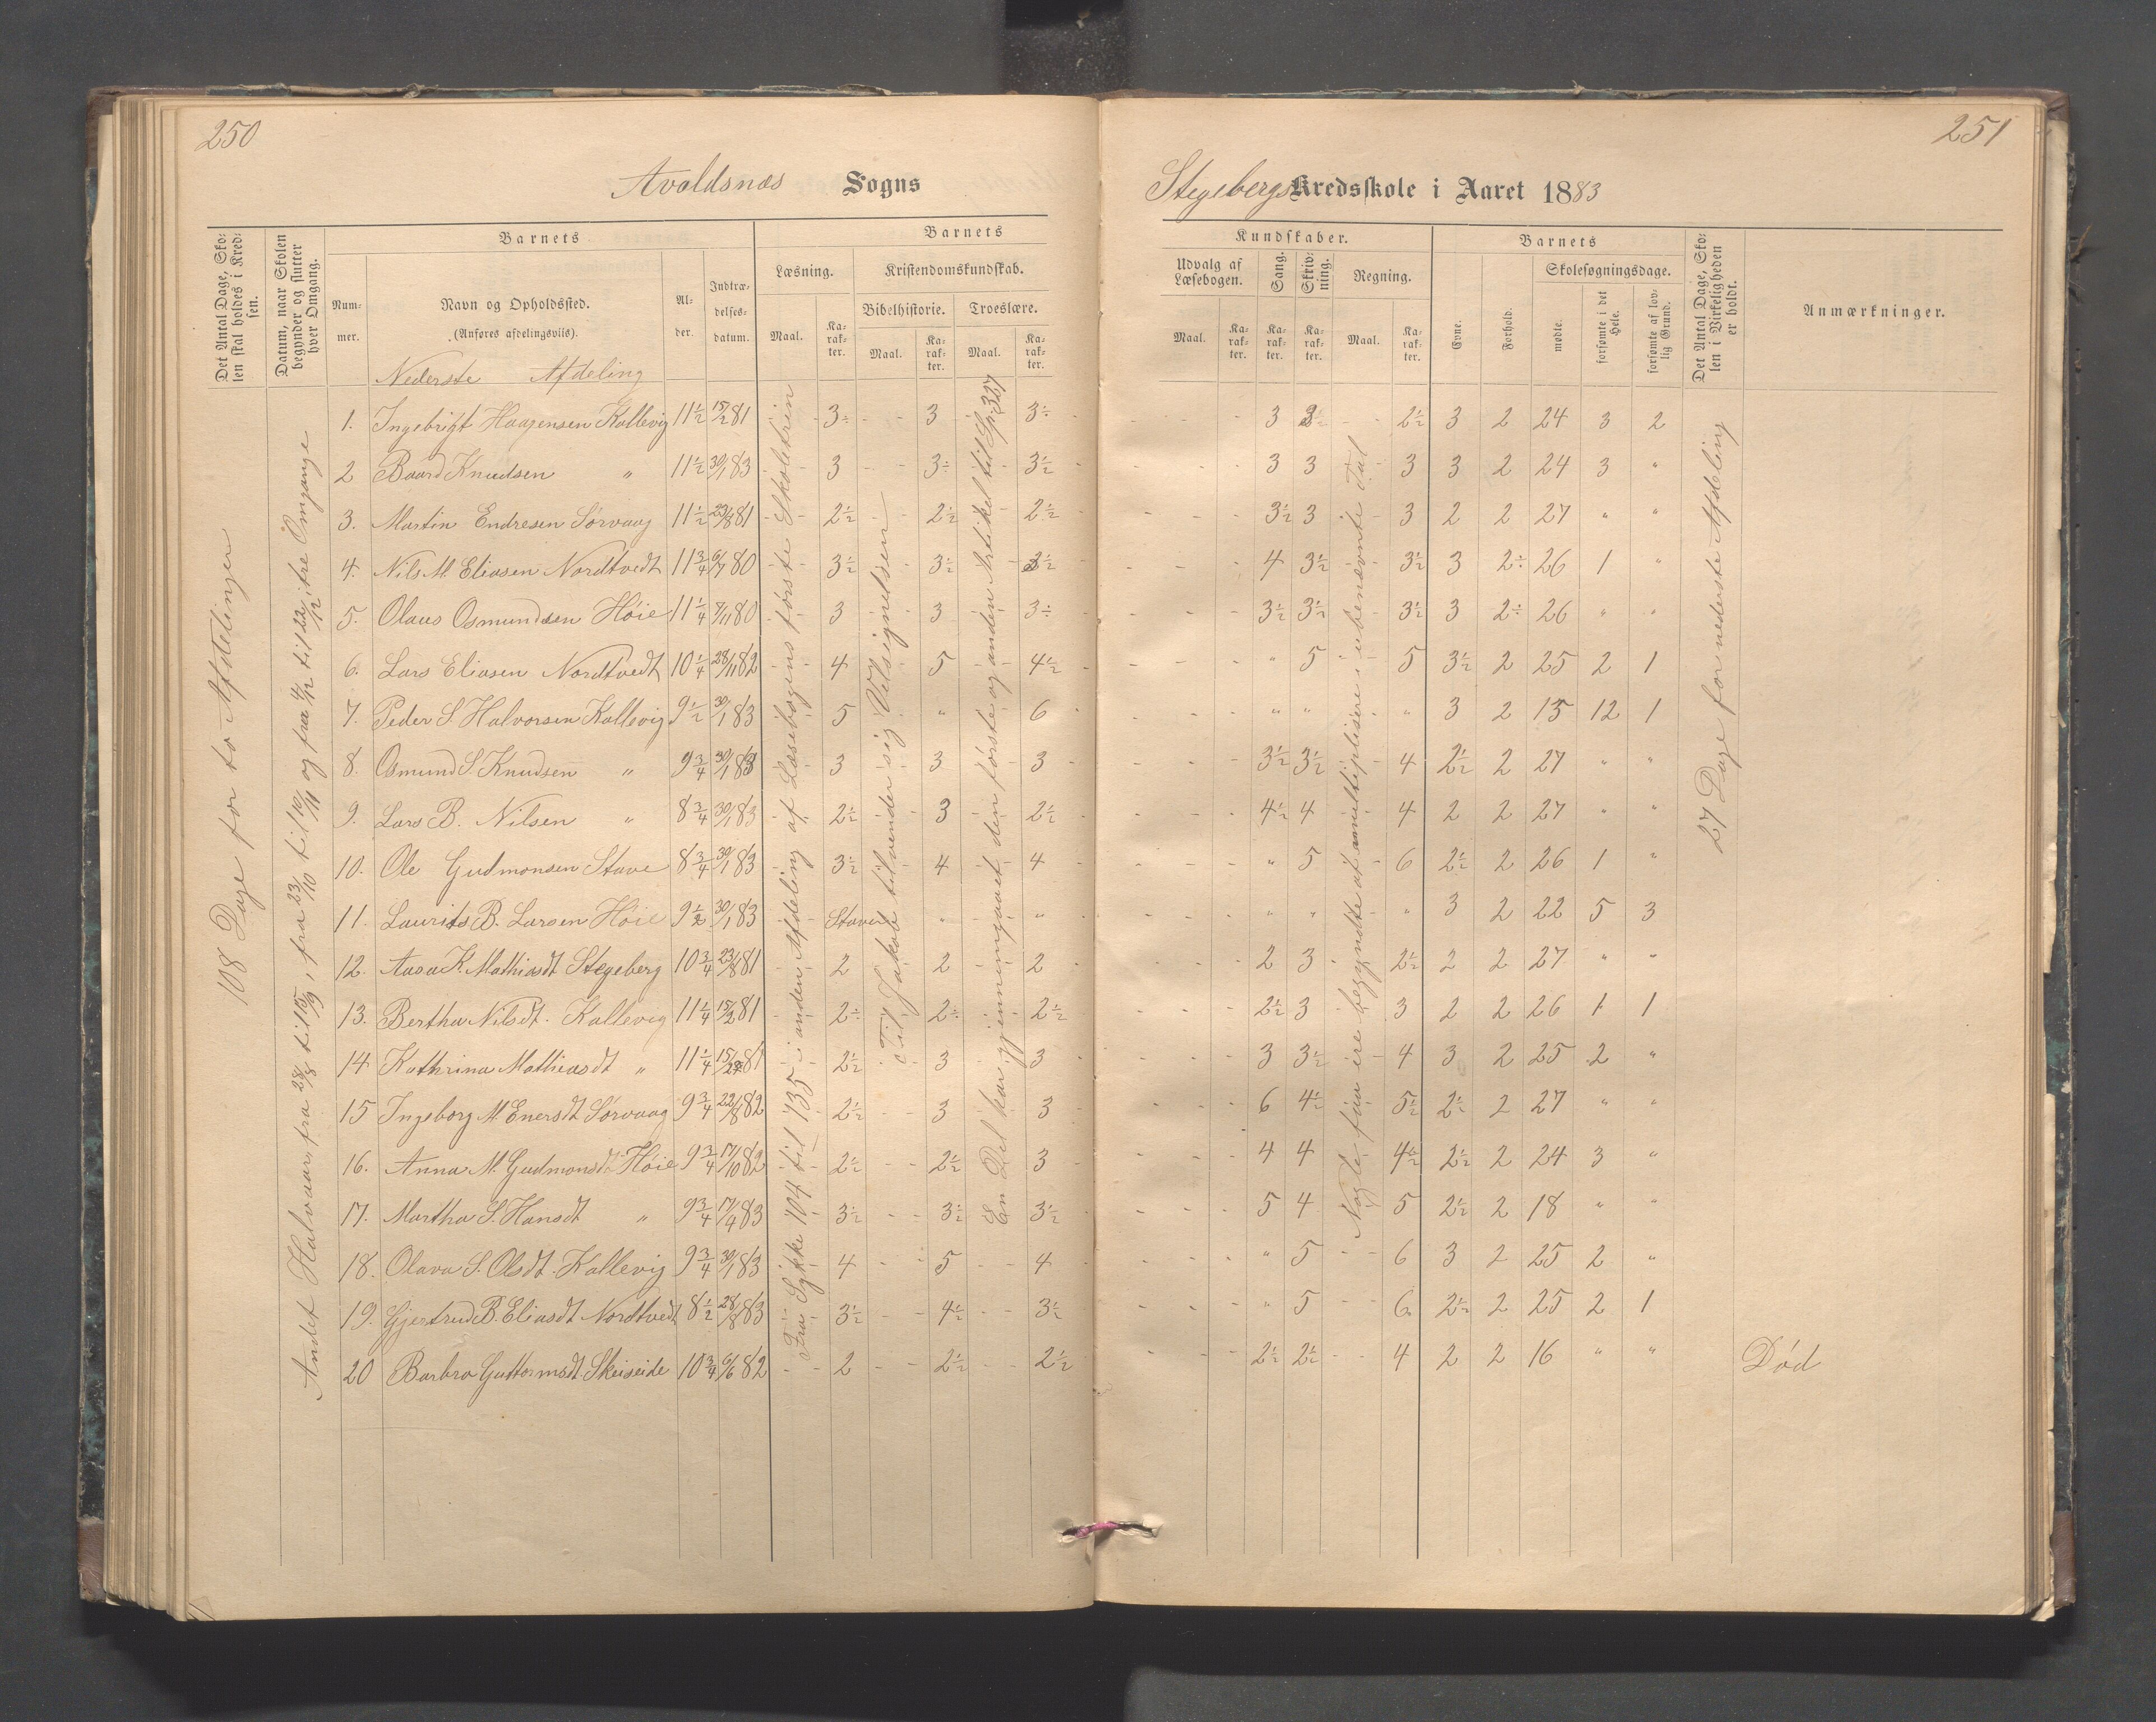 250
251
Avaldsnæs Sogns
Stegebergs Kredsskole i Aaret 1883
Det Antal Dage, Skolen skal holdes i Kredsen.
Datum, naar Skolen begynder og slutter hver Omgang.
Barnets
Nummer.
Navn og Opholdssted.
(Anføres afdelingsvis).
Alder.
Indtrædelsesdatum.
Barnets
Læsning.
Maal.
Karakter.
Kristendomskundskab.
Bibelhistorie.
Maal.
Karakter.
Troeslære.
Maal.
Karakter.
Kundskaber.
Udvalg af Læsebogen.
Maal.
Karakter.
Sang.
Karakter.
Skrivning.
Karakter.
Regning.
Maal.
Karakter.
Barnets
Evne.
Forhold.
Skolesøgningsdage.
mødte.
forsømte i det Hele.
forsømte af lovlig Grund.
Det Antal Dage, Skolen i Virkeligheden er holdt.
Anmærkninger.
Nederste Afdeling
108 Dage for to Afdelinger
Andet Halvaar, fra 28/8 til 15/9, fra 23/10 til 10/11 og fra 4/12 til 22/12, i tre Omgange
Fra Stykke 104 til 135 i anden Afdeling af Læsebogens første Skoletrin
Til Jakob tilvender sig Velsignelsen
En Del har gjennemgaaet den første og anden Artikel til Sp. 327
Nogle faa ere begyndte at multiplisere i ubenævnte Tal
27 Dage for nederste Afdeling
1. Ingebrigt Haagensen Kallevig 11½ 15/2 81 3÷ 3 3÷ 3 3½ 2½ 3 2 24 3 2
2 Baard Knudsen " 11½ 30/1 83 3 3÷ 3½ 3 3 3 3 2 24 3 "
3. Martin Endresen Sørvaag 11½ 23/8 81 2½ 2½ 2½ 3½ 3 3 2 2 27 " "
4. Nils M. Eliasen Nordtvedt 11¾ 6/7 80 3½ 3½ 3½ 4 3½ 3½ 3 2÷ 26 1 "
5. Olaus Osmundsen Høie 11¼ 8/11 80 3 3 3÷ 3½ 3½ 3½ 3 2÷ 26 " "
6. Lars Eliasen Nordtvedt 10¼ 28/11 82 4 5 4½ " 5 5 3½ 2 25 2 1
7. Peder S. Halvorsen Kallevig 9½ 30/1 83 5 " 6 " " " 3 2 15 12 1
8. Osmund S. Knudsen " 9¾ 30/1 83 3 3 3 3½ 3½ 4 2½ 2 27 " "
9. Lars B. Nilsen " 8¾ 30/1 83 2½ 3 2½ 4½ 4 4 2 2 27 " "
10. Ole Gudmonsen Stave 8¾ 30/1 83 3½ 4 4 " 5 6 2½ 2 26 1 "
11. Laurits B. Larsen Høie 9½ 30/1 83 Staver " " " " " 3 2 22 5 3
12. Aasa K. Mathiasdt Stegeberg 10¾ 23/8 81 2 2 2 2 3 2½ 2 2 27 " "
13. Bertha Nilsdt. Kallevig 11¼ 15/2 81 2÷ 2÷ 2½ 2½ 3 3 2 2 26 1 1
14 Kathrina Mathiasdt " 11¼ 15/2 81 2½ 3 3 3 3½ 4 3 2 25 2 "
15 Ingeborg M. Enersdt Sørvaag 9¾ 22/8 82 2½ 3 3 6 4½ 5½ 2½ 2 27 " "
16. Anna M. Gudmonsdt Høie 9¾ 17/10 82 2½ 2½ 3 4 4 4½ 2½ 2 24 3 "
17. Martha S. Hansdt " 9¾ 17/4 83 3½ 3½ 3½ 5 4 5 2½ 2 18 " "
18. Olava S. Olsdt. Kallevig 9¾ 30/1 83 4 5 4 " 5 6 3 2 25 2 "
19. Gjertrud B. Eliasdt Nordtvedt 8½ 28/8 83 3½ 4½ 3½ " 5 6 2½ 2 25 2 1
20 Barbra Guttormsdt. Skeiseide 10¾ 6/6 82 2 2½ 2½ 2½ 2½ 4 2 2 16 " " Død